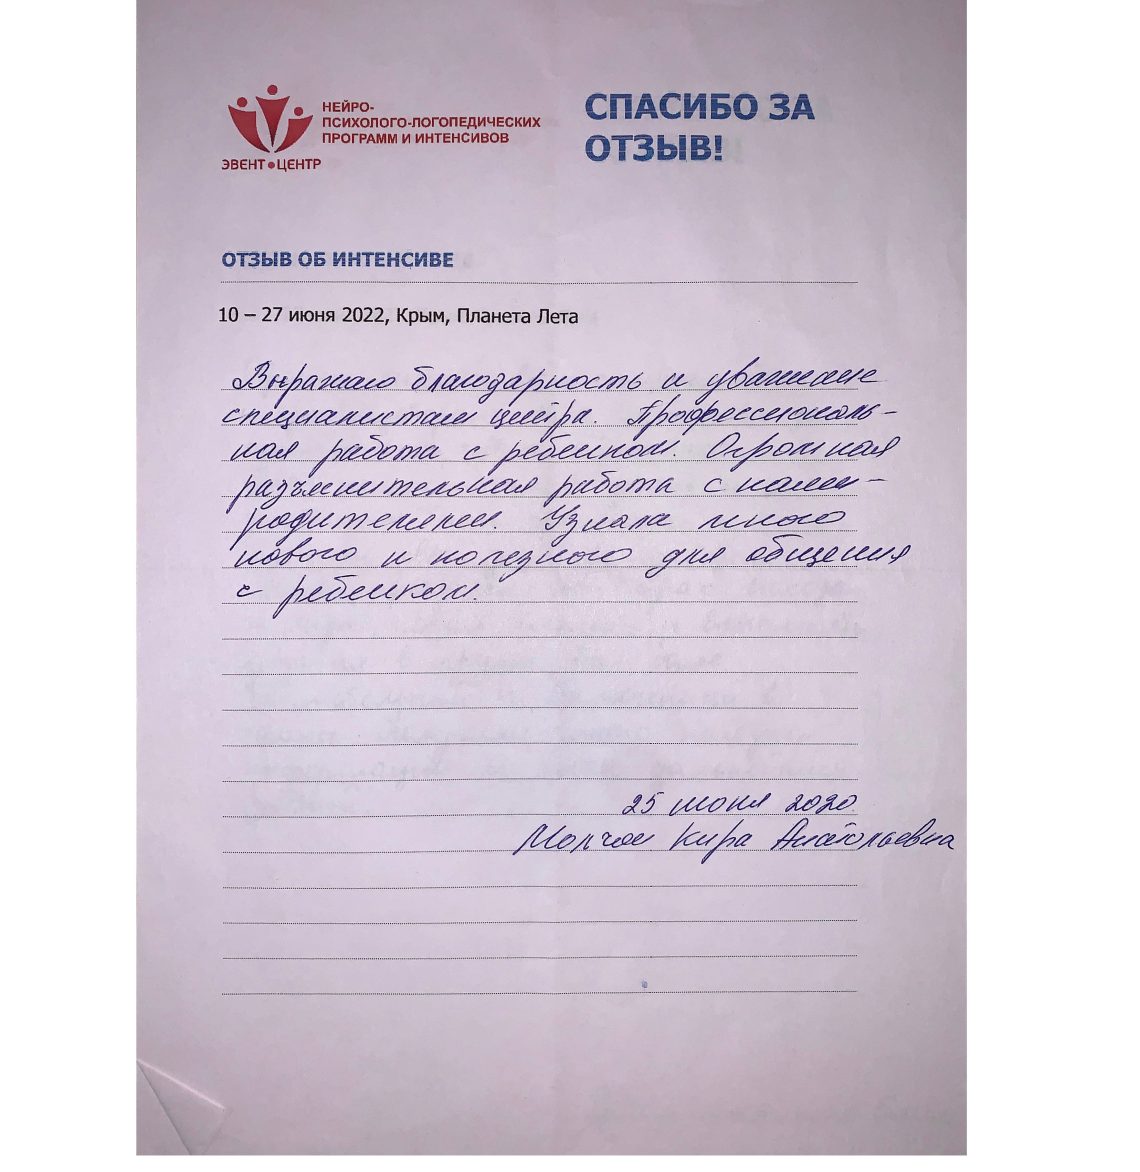 НЕЙРО-
ПСИХОЛОГО-ЛОГОПЕДИЧЕСКИХ
ПРОГРАММ И ИНТЕНСИВОВ
ЭВЕНТ•ЦЕНТР
СПАСИБО ЗА
ОТЗЫВ!
ОТЗЫВ ОБ ИНТЕНСИВЕ
10 – 27 июня 2022, Крым, Планета Лета
Выражаю благодарность и уважение
специалистам центра. Профессиональ-
ная работа с ребенком. Огромная
разъяснительная работа с нами-
родителями. Узнала много
нового и полезного для общения
с ребенком.
25 июня 2020
Кира Анатольевна